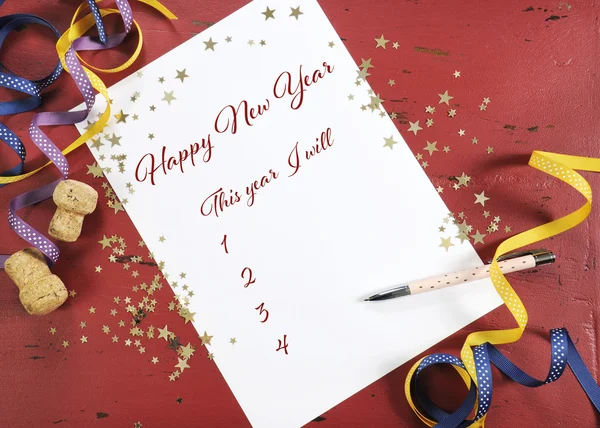 Happy New Year
This year I will
1
2
3
4